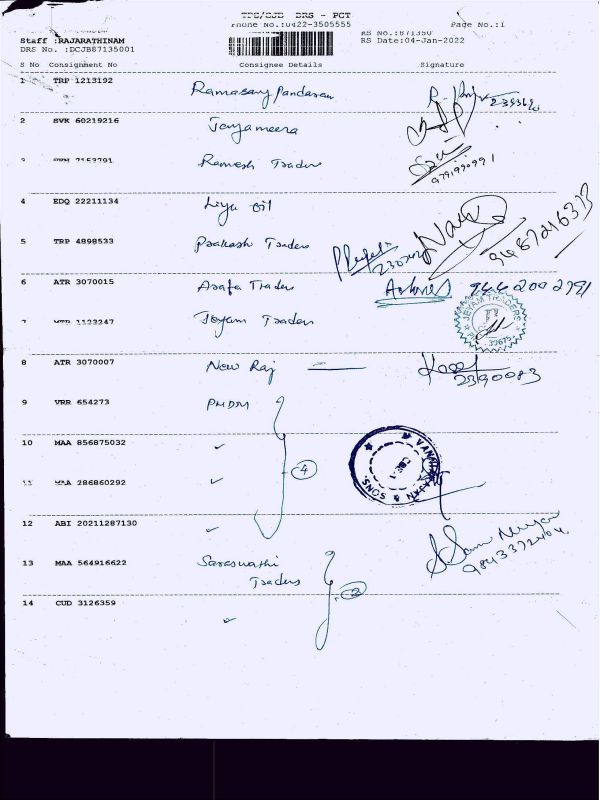 TPS/CJB DRS - PCT
Phone No.:0422-3505555 Page No.:1
RS No.:871350
Staff :RAJARATHINAM RS Date:04-Jan-2022
DRS No. :DCJB87135001
S No Consignment No Consignee Details Signature
1 TRP 1213192 Ramasamy Pandaram
2 SVK 60219216 Jeyameera
3 7153791 Ramesh Traders
9791990991
4 EDQ 22211134 Liya oil
9487246373
5 TRP 4898533 Prakash Traders
6 ATR 3070015 Arafa Traders 9442002791
7 1133247 Jeyam Traders
JEYAM TRADERS
8 ATR 3070007 New Raj
2390083
9 VRR 654273 PMDM
10 MAA 856875032 ✓
4
VANNIARAJAN & SONS
11 MAA 286860292 ✓
12 ABI 20211287130 ✓
9843372404
13 MAA 564916622 Saraswathi
Traders
2
14 CUD 3126359 ✓